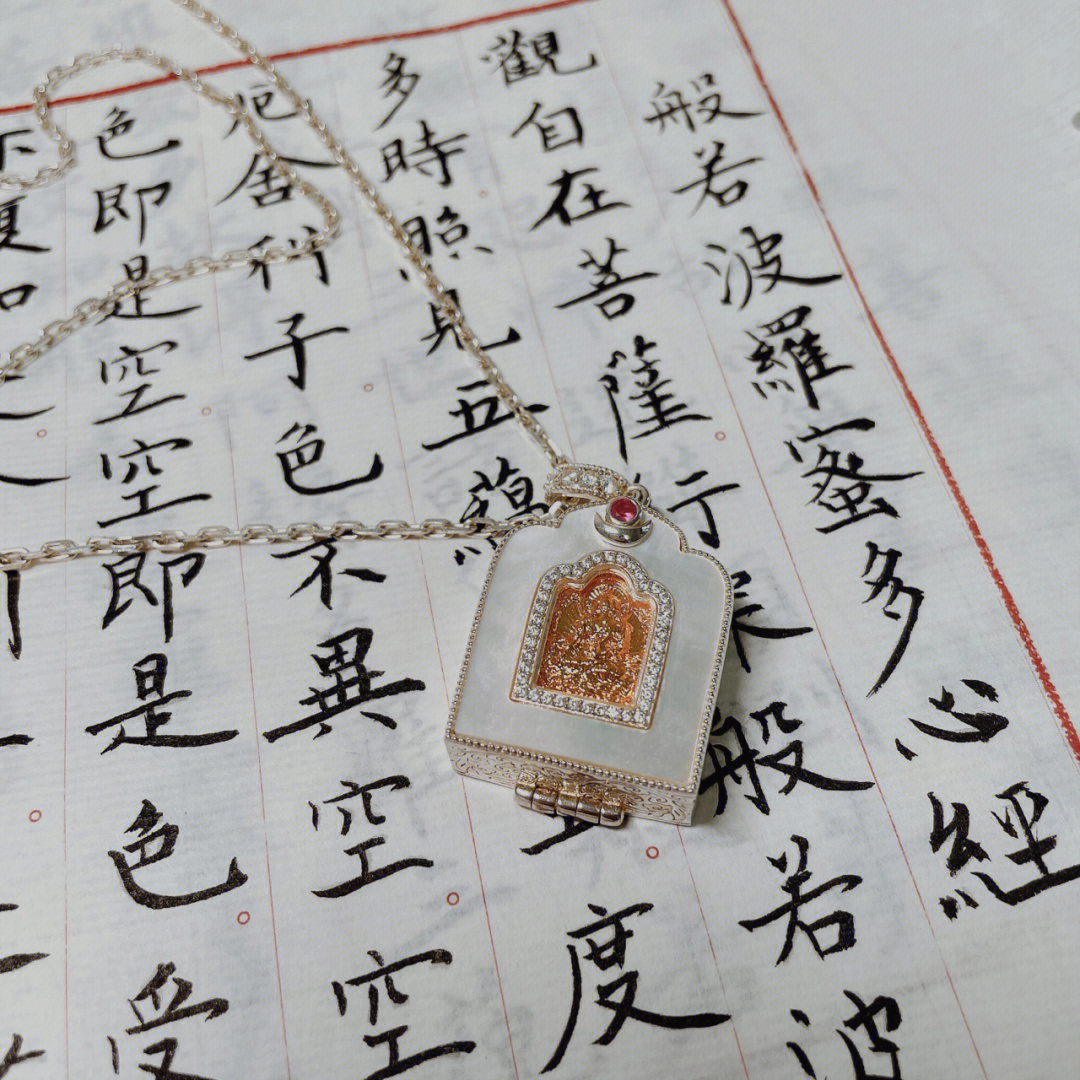 般若波羅蜜多心經
觀自在菩薩行深般若波
多時照見五蘊空度
厄舍利子色不異空空
色即是空空即是色受
復如